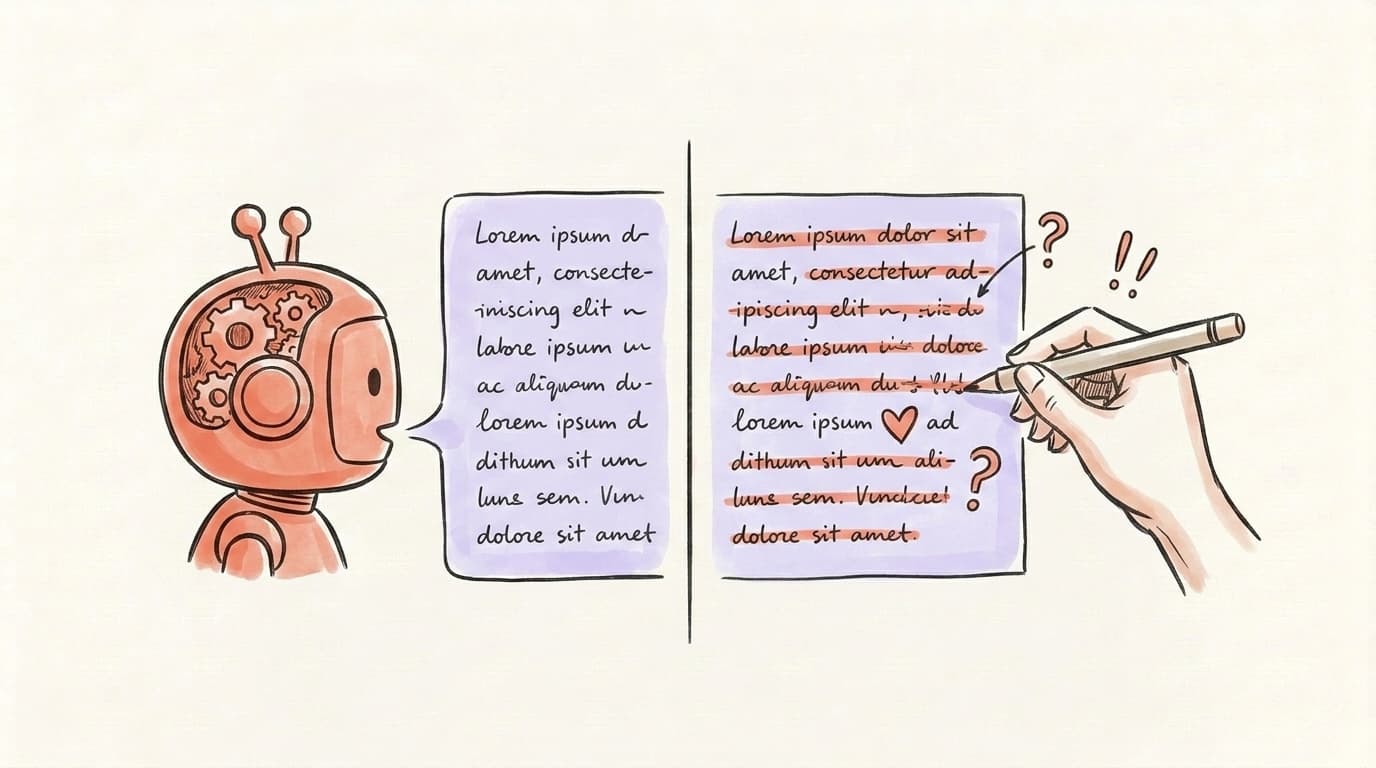 Lorem ipsum
amet, consecte-
elit
labore ipsum
ac aliquam du-
lorem ipsum d
dithum sit um
luns sem. Vun
dolore sit amet
Lorem ipsum dolor sit
amet, consectetur ad-
ipiscing elit
labore ipsum dolore
ac aliquam du
lorem ipsum ❤ ad
dithum sit um ali-
luns sem.
dolore sit amet.
?
!!
?